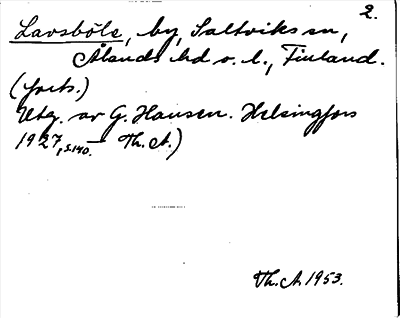 2.
Lavsböle, by, Saltviks sn,
Ålands hd o. l., Finland.
(forts.)
Utg. av G. Hausen. Helsingfors
1927, s.140. — Th. A.)
Th. A. 1953.